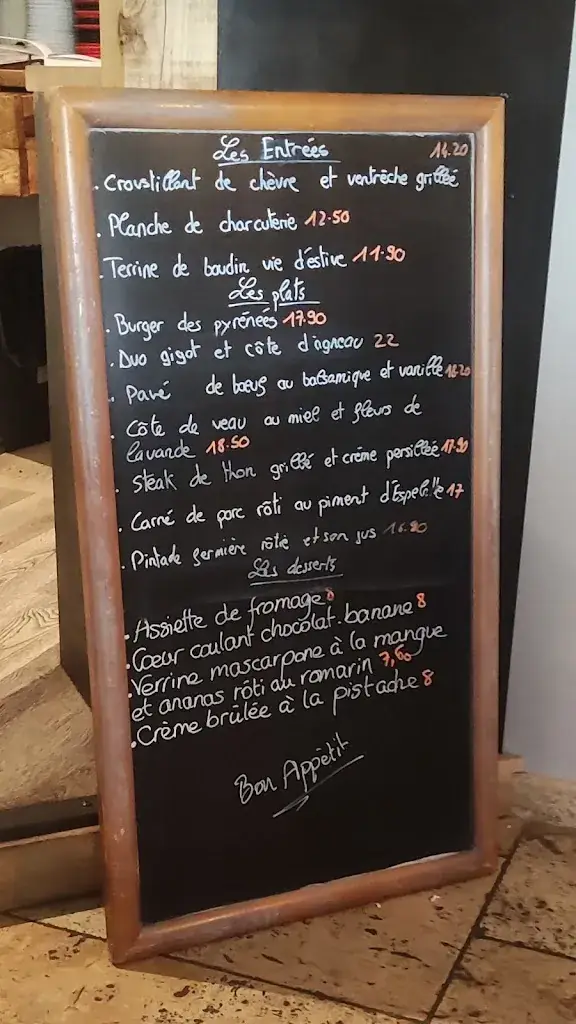 Les Entrées 14.20
. Croustillant de chèvre et ventrèche grillée
. Planche de charcuterie 12.50
. Terrine de boudin vie d'estive 11.90
Les plats
. Burger des pyrénées 17.90
. Duo gigot et côte d'agneau 22
. Pavé de bœuf au balsamique et vanille 18.20
. Côte de veau au miel et fleurs de
lavande 18.50
. Steak de thon grillé et crème persillée 17.90
. Carré de porc rôti au piment d'Espelette 17
. Pintade fermière rôtie et son jus 16.80
Les desserts
. Assiette de fromage 8
. Cœur coulant chocolat-banane 8
. Verrine mascarpone à la mangue
et ananas rôti au romarin 7,60
. Crème brûlée à la pistache 8
Bon Appétit